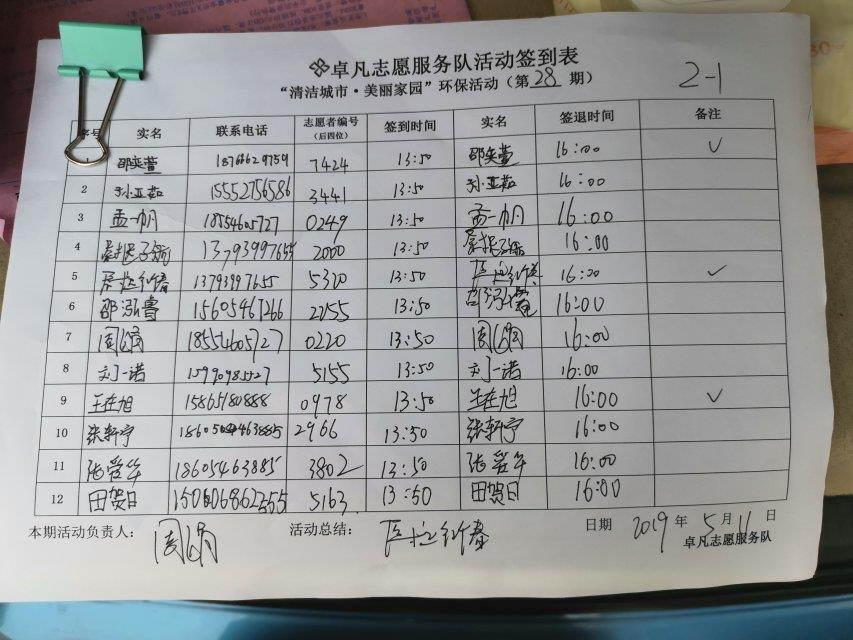 卓凡志愿服务队活动签到表
“清洁城市·美丽家园”环保活动（第28期）
2-1
序号 实名 联系电话 志愿者编号（后四位） 签到时间 实名 签退时间 备注
1 邵奕萱 7424 13:50 邵奕萱 16:00 ✓
2 孙亚茹 15552756586 3441 13:50 孙亚茹 16:00
3 孟一帆 18554605727 0249 13:50 孟一帆 16:00
4 13793997655 2000 13:50 16:00
5 13793997655 5320 13:50 16:00 ✓
6 邵泓鲁 15605467266 2155 13:50 16:00
7 周 18554605727 0220 13:50 周 16:00
8 刘一诺 5155 13:50 刘一诺 16:00
9 王在旭 15865180888 0978 13:50 王在旭 16:00 ✓
10 张轩宁 2966 13:50 张轩宁 16:00
11 张爱华 18605463885 3802 13:50 张爱华 16:00
12 田贺日 5163 13:50 田贺日 16:00
本期活动负责人： 周 活动总结： 日期 2019年5月11日
卓凡志愿服务队